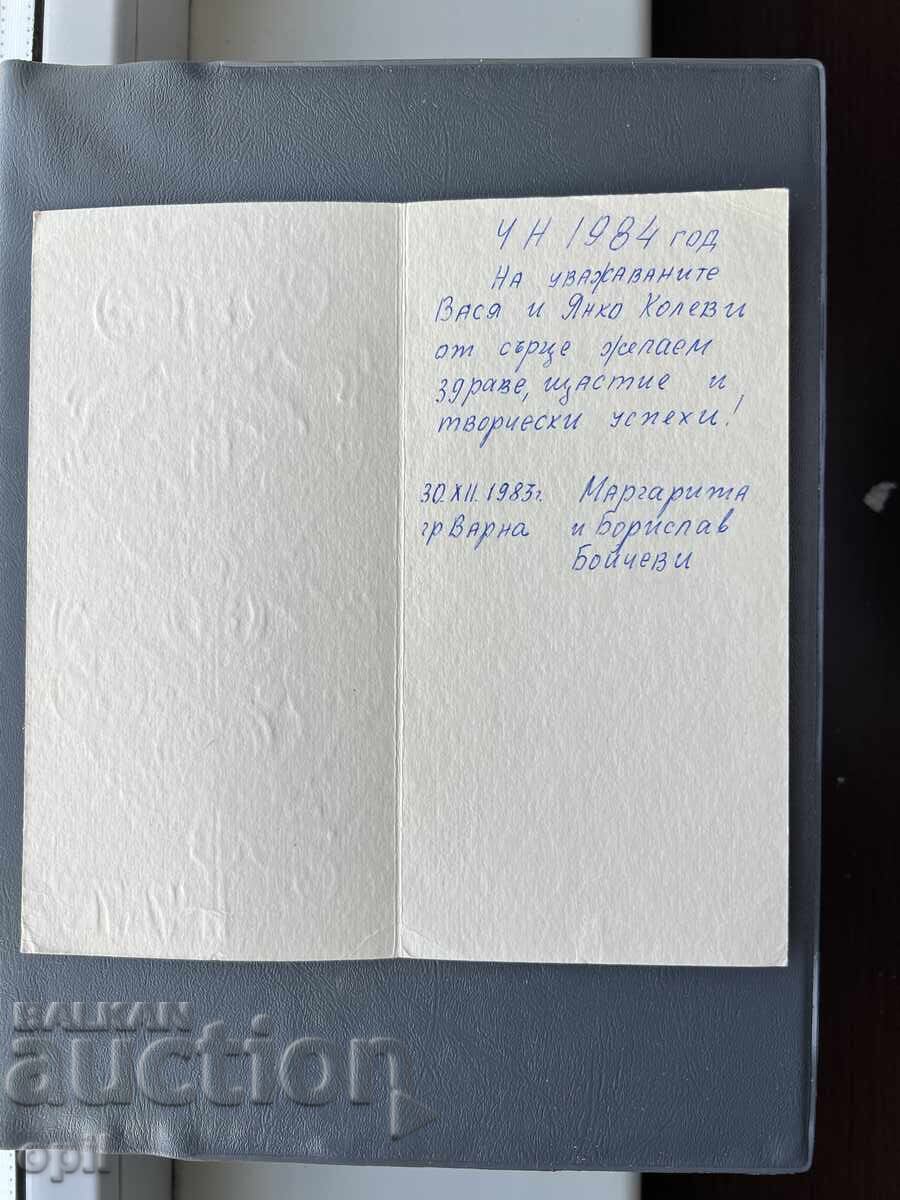 ЧН 1984 год
На уважаваните
Вася и Янко Колеви
от сърце желаем
здраве, щастие и
творчески успехи!
30.XII.1983г. Маргарита
гр Варна и Борислав
Бойчеви
BALKAN
auction
opil